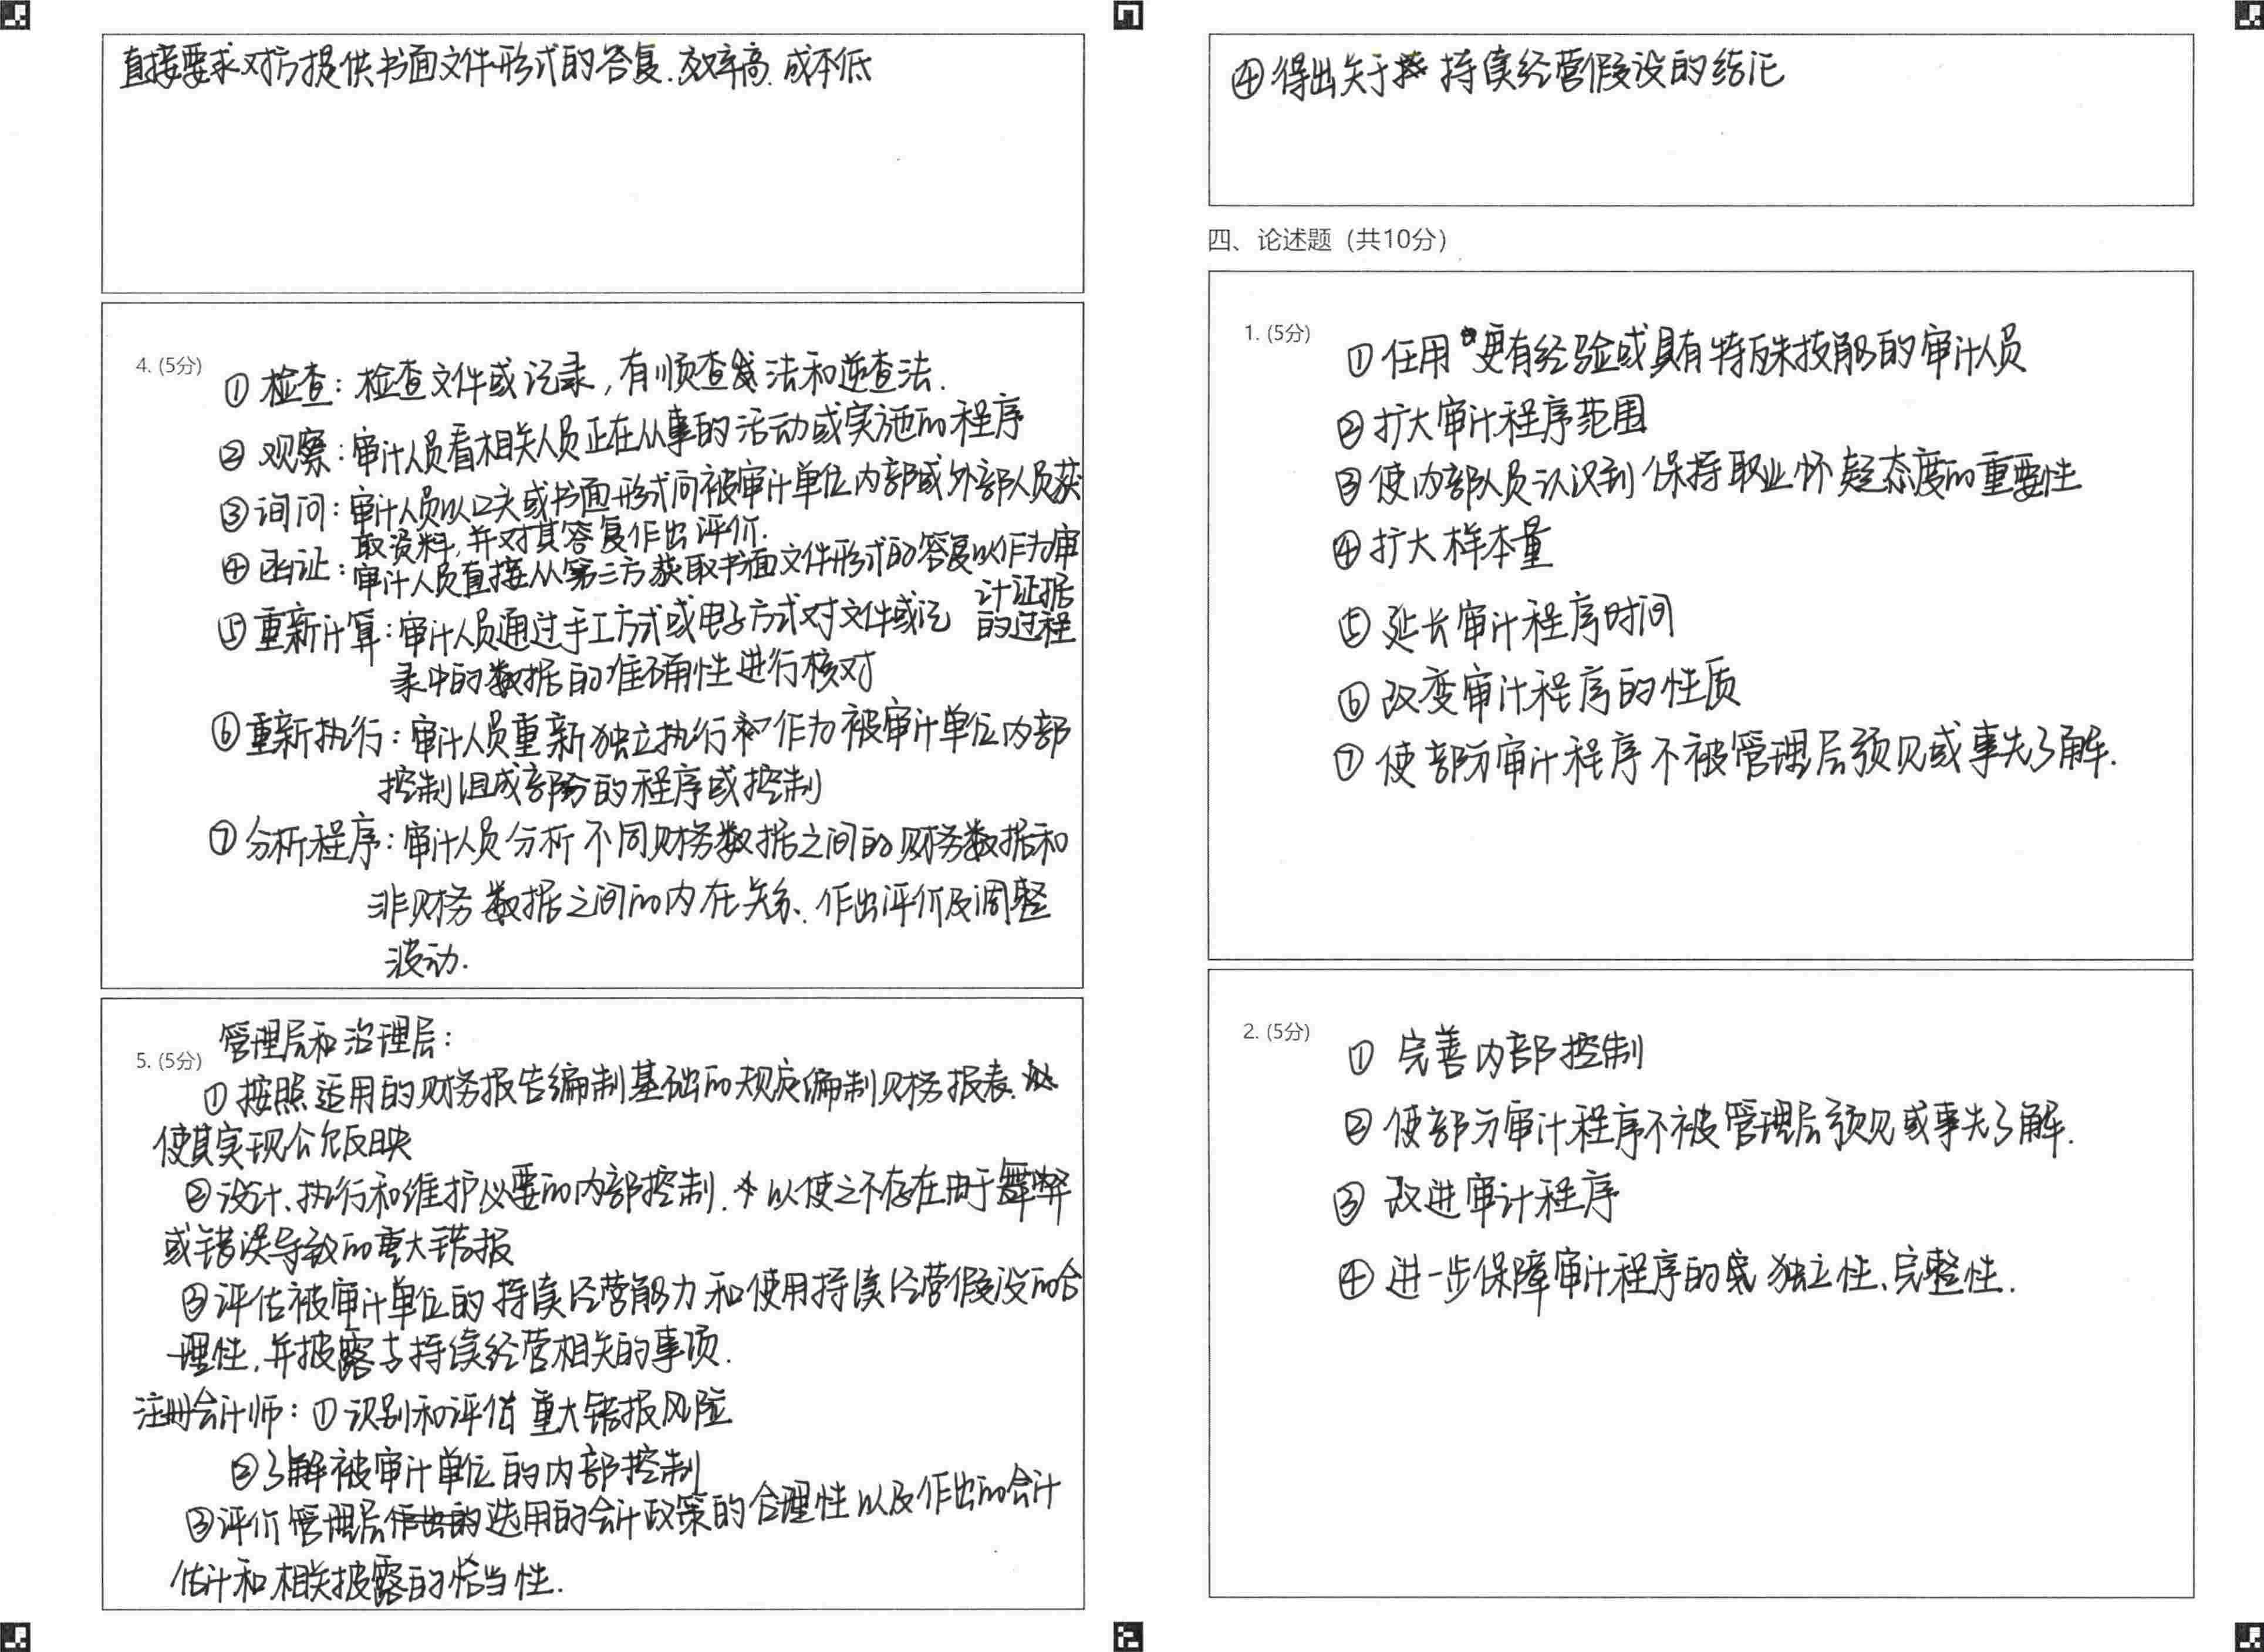 直接要求对方提供书面文件形式的答复.效率高.成本低
4. (5分)
①检查：检查文件或记录,有顺查法和逆查法.
②观察：审计人员看相关人员正在从事的活动或实施的程序
③询问：审计人员以口头或书面形式问被审计单位内部或外部人员获
取资料,并对其答复作出评价.
④函证：审计人员直接从第三方获取书面文件形式的答复以作为审
计证据
的过程
⑤重新计算：审计人员通过手工方式或电子方式对文件或记
录中的数据的准确性进行核对
⑥重新执行：审计人员重新独立执行作为被审计单位内部
控制组成部分的程序或控制
⑦分析程序：审计人员分析不同财务数据之间的财务数据和
非财务数据之间的内在关系、作出评价及调整
波动.
5. (5分)
管理层和治理层：
①按照适用的财务报告编制基础的规定编制财务报表.
使其实现公允反映
②设计、执行和维护必要的内部控制.以使之不存在由于舞弊
或错误导致的重大错报
③评估被审计单位的持续经营能力和使用持续经营假设的合
理性,并披露与持续经营相关的事项.
注册会计师：①识别和评估重大错报风险
②了解被审计单位的内部控制
③评价管理层选用的会计政策的合理性以及作出的会计
估计和相关披露的恰当性.
④得出关于持续经营假设的结论
四、论述题（共10分）
1. (5分)
①任用更有经验或具有特殊技能的审计人员
②扩大审计程序范围
③使内部人员认识到保持职业怀疑态度的重要性
④扩大样本量
⑤延长审计程序时间
⑥改变审计程序的性质
⑦使部分审计程序不被管理层预见或事先了解.
2. (5分)
①完善内部控制
②使部分审计程序不被管理层预见或事先了解.
③改进审计程序
④进一步保障审计程序的独立性、完整性.